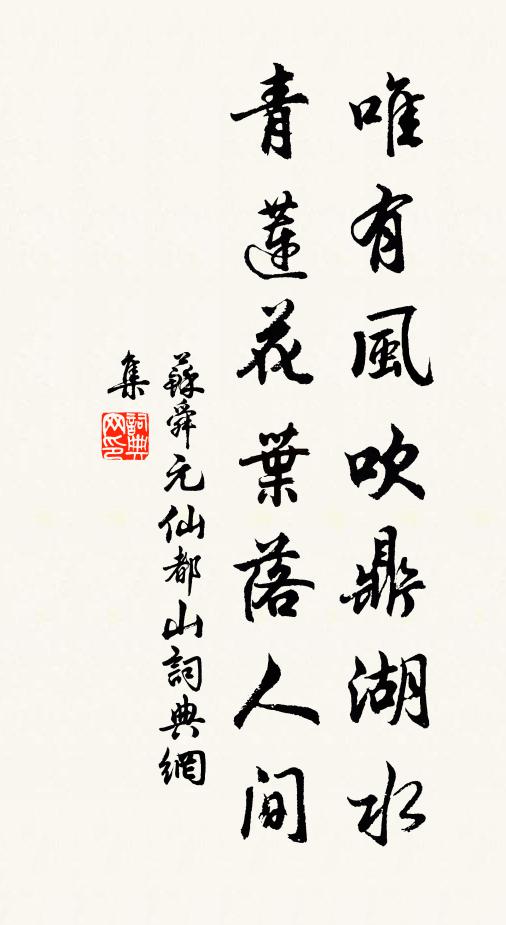 唯有風吹鼎湖水
青蓮花葉落人间
蘇舜元仙都山詞典網
集
詞典网印